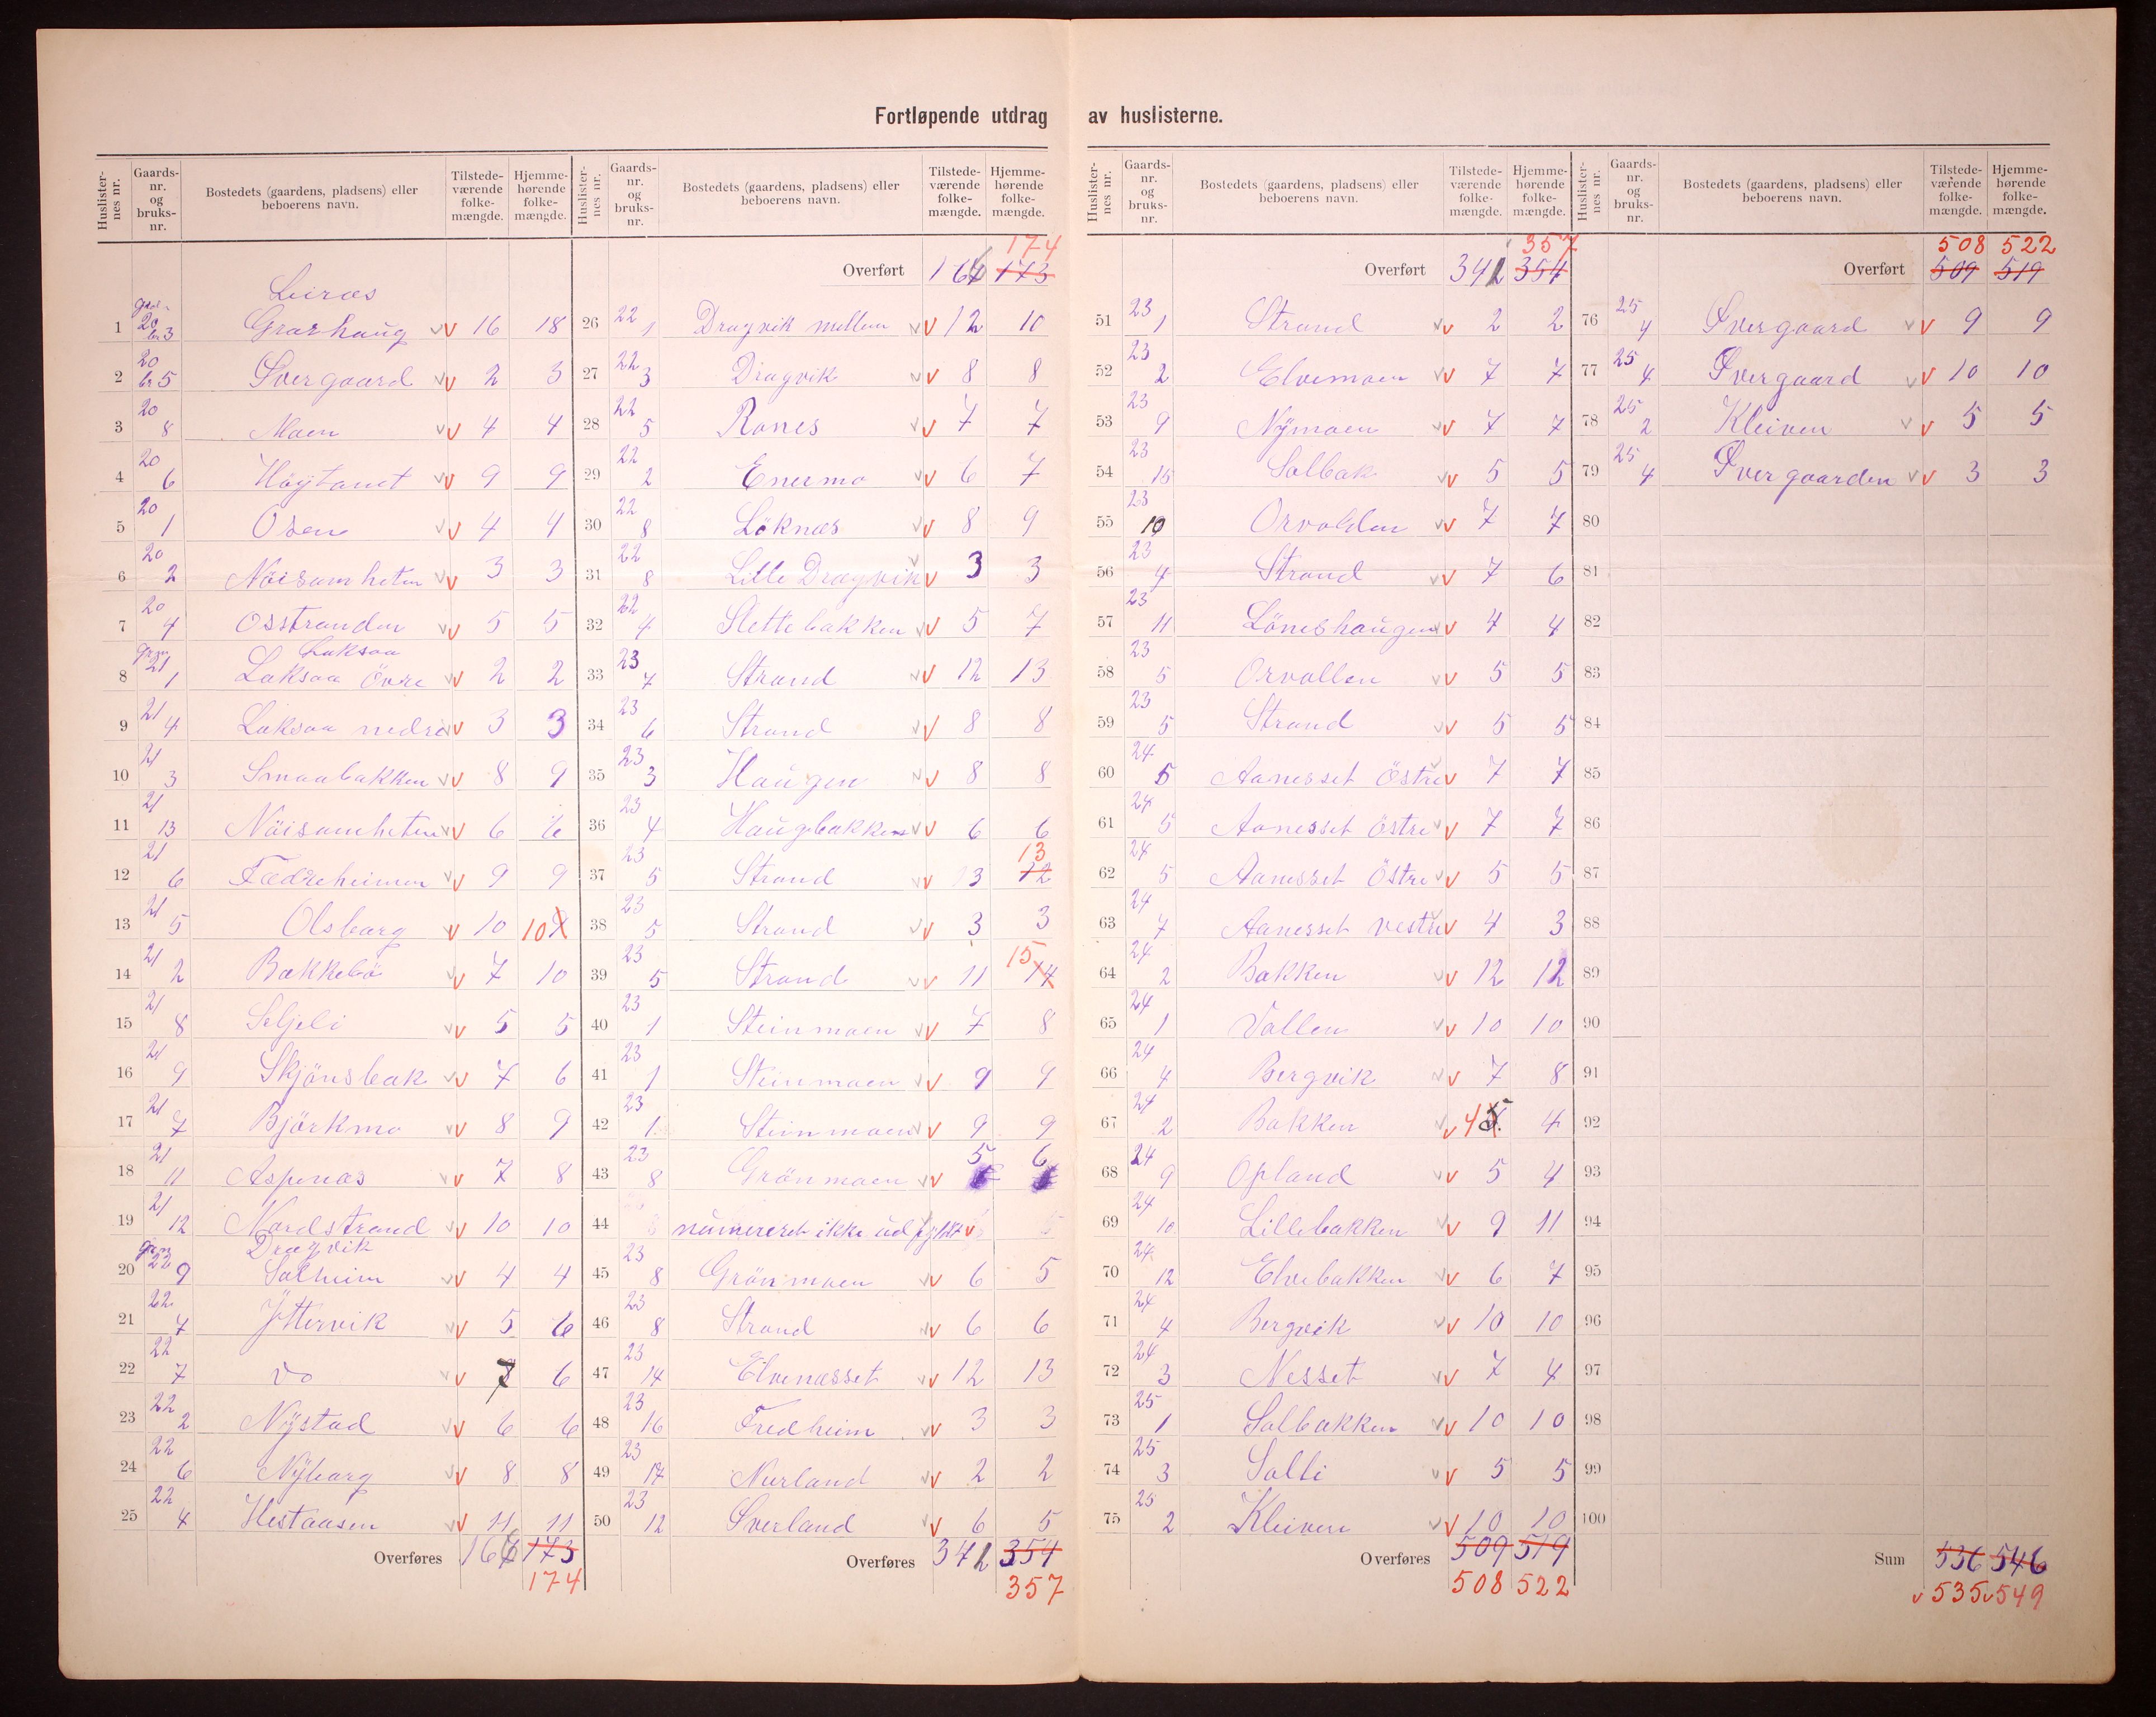 Fortløpende utdrag av huslisterne.
Huslister-nes nr. Gaards-nr. og bruks-nr. Bostedets (gaardens, pladsens) eller beboerens navn. Tilstede-værende folke-mængde. Hjemme-hørende folke-mængde.
Leiros
1 20 br 3 Grashaug 16 18
2 20 br 5 Svergaard 2 3
3 20 8 Moen 4 4
4 20 6 Höytomt 9 9
5 20 1 Osen 4 4
6 20 2 Nöisomheten 3 3
7 20 4 Osstranden 5 5
Laksaa
8 21 1 Laksaa Övre 2 2
9 21 4 Laksaa nedre 3 3
10 21 3 Smaabakken 8 9
11 21 13 Nöisomheten 6 6
12 21 6 Fædreheimen 9 9
13 21 5 Olsborg 10 10
14 21 2 Bakkebö 7 10
15 21 8 Seljeli 5 5
16 21 9 Skjönsbak 7 6
17 21 7 Björkmo 8 9
18 21 11 Aspenas 7 8
19 21 12 Nordstrand 10 10
Dragvik
20 22 9 Solheim 4 4
21 22 7 Yttervik 5 6
22 22 7 Do 7 6
23 22 2 Nystad 6 6
24 22 6 Nyborg 8 8
25 22 4 Hestaasen 11 11
Overføres 166 173
174
Huslister-nes nr. Gaards-nr. og bruks-nr. Bostedets (gaardens, pladsens) eller beboerens navn. Tilstede-værende folke-mængde. Hjemme-hørende folke-mængde.
174
Overført 166 173
26 22 1 Dragvik mellem 12 10
27 22 3 Dragvik 8 8
28 22 5 Rones 7 7
29 22 2 Enermo 6 7
30 22 8 Löknæs 8 9
31 22 8 Lille Dragvik 3 3
32 22 4 Slettebakken 5 7
33 23 4 Strand 12 13
34 23 6 Strand 8 8
35 23 3 Haugen 8 8
36 23 4 Haugbakken 6 6
13
37 23 5 Strand 13 12
38 23 5 Strand 3 3
15
39 23 5 Strand 11 14
40 23 1 Steinmoen 7 8
41 23 1 Steinmoen 9 9
42 23 1 Steinmoen 9 9
43 23 8 Grönmoen 5 6
44 numereret ikke udfyldt
45 23 8 Grönmoen 6 5
46 23 8 Strand 6 6
47 23 14 Elvenæsset 12 13
48 23 16 Fredheim 3 3
49 23 17 Nurland 2 2
50 23 12 Sverland 6 5
Overføres 341 354
357
Huslister-nes nr. Gaards-nr. og bruks-nr. Bostedets (gaardens, pladsens) eller beboerens navn. Tilstede-værende folke-mængde. Hjemme-hørende folke-mængde.
357
Overført 341 354
51 23 1 Strand 2 2
52 23 2 Elvemoen 7 7
53 23 9 Nymoen 7 7
54 23 15 Solbak 5 5
55 23 10 Orvolden 7 7
56 23 4 Strand 7 6
57 23 11 Löneshaugen 4 4
58 23 5 Orvollen 5 5
59 23 5 Strand 5 5
60 24 5 Aanesset Östre 7 7
61 24 5 Aanesset Östre 7 7
62 24 5 Aanesset Östre 5 5
63 24 7 Aanesset vestre 4 3
64 24 2 Bakken 12 12
65 24 1 Vollen 10 10
66 24 4 Bergvik 7 8
67 24 2 Bakken 4 5 4
68 24 9 Opland 5 4
69 24 10 Lillebakken 9 11
70 24 12 Elvebakken 6 7
71 24 4 Bergvik 10 10
72 24 3 Nesset 7 4
73 25 1 Solbakken 10 10
74 25 3 Solli 5 5
75 25 2 Kleiven 10 10
Overføres 509 519
508 522
Huslister-nes nr. Gaards-nr. og bruks-nr. Bostedets (gaardens, pladsens) eller beboerens navn. Tilstede-værende folke-mængde. Hjemme-hørende folke-mængde.
508 522
Overført 509 519
76 25 4 Svergaard 9 9
77 25 4 Svergaard 10 10
78 25 2 Kleiven 5 5
79 25 4 Svergaarden 3 3
80
81
82
83
84
85
86
87
88
89
90
91
92
93
94
95
96
97
98
99
100
Sum 536 546
535 549